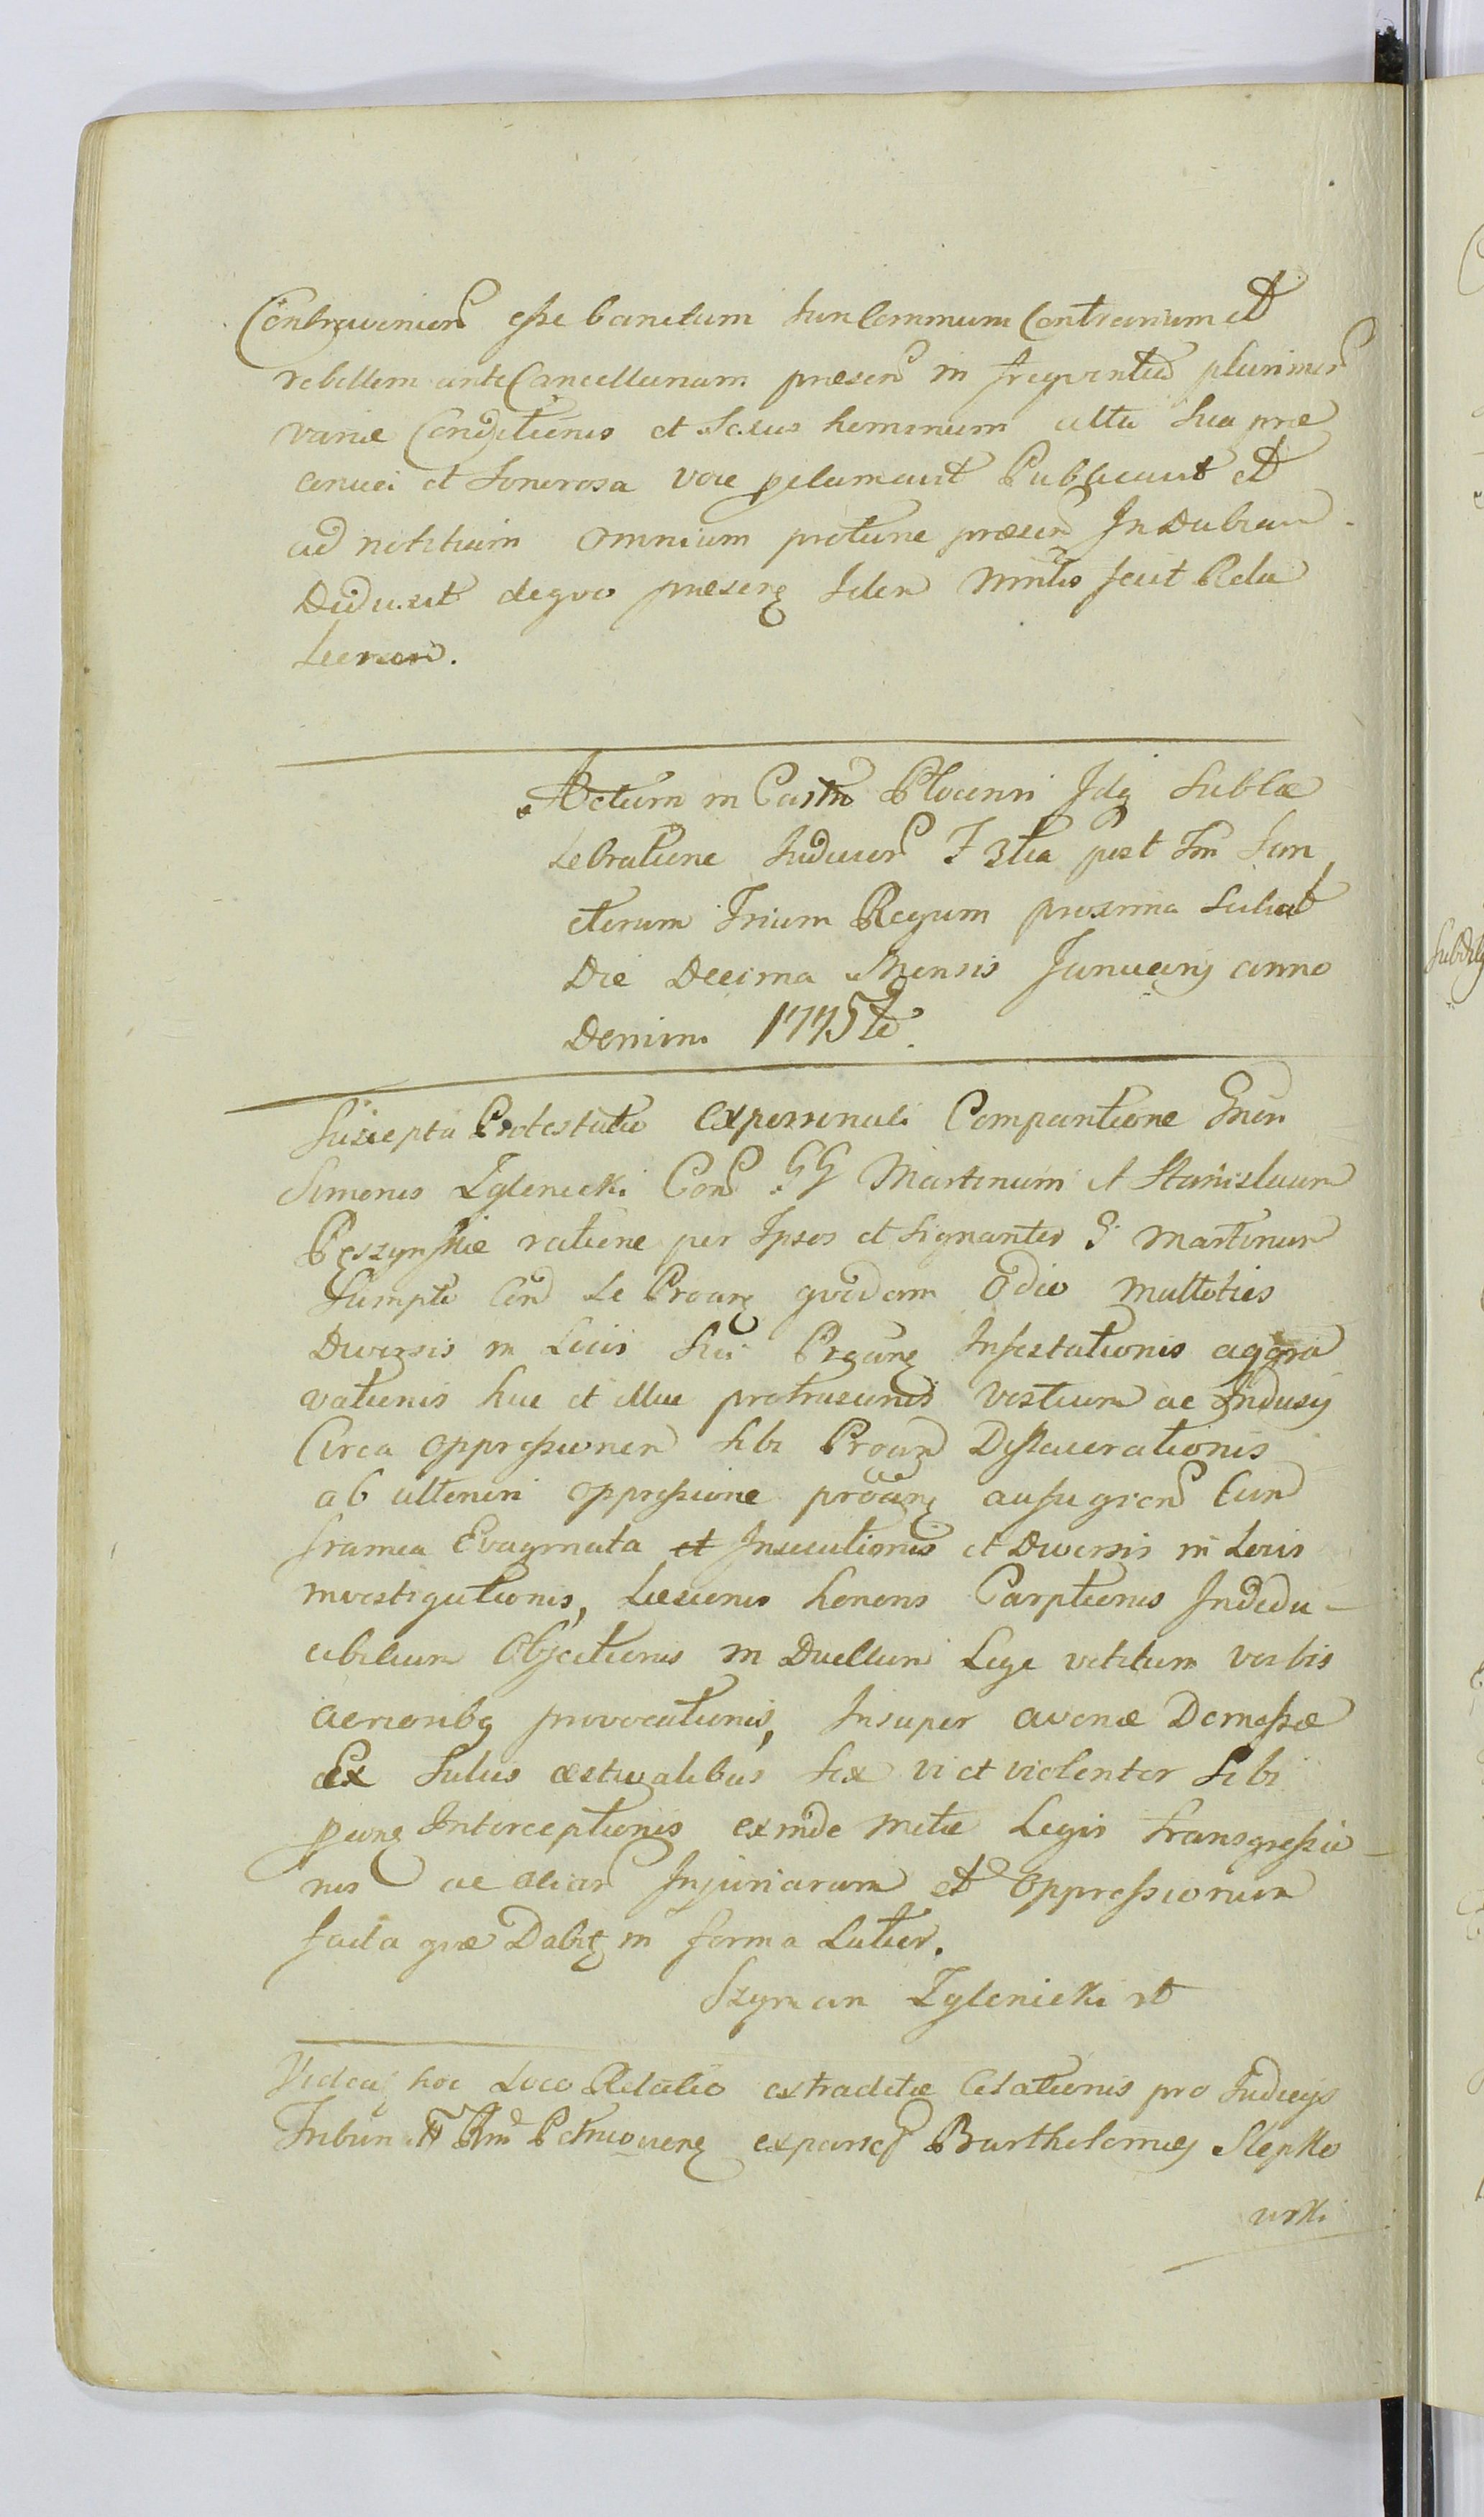 Contravenien esse banitum Juri Communi Contrarium et
rebellem ante Cancellariam præsen in frequentia plurimor
variæ Conditionis et Sexus hominum alta sua præ
conuci et Sonorosa voce pclamavit Publicavit et
ad notitiam omnium protunc præsen Indubiam
Deduxit de quo præsens Iden Mntlis fecit Rela
Actum in Castro Plocensi Idq Sub Ce
lebratione Judicior Fstia post Fm San
ctorum Trium Regum proxima Scilicet
Die Decima Mensis Januarij anno
Domini 1775to.
Suscepta Protestatio ex personali Comparitione Gnen
Simonis Zglenicki Con GG Martinum et Stanislaum
ratione per Ipsos et signanter G. Martinum
Sumpto Con Se Proten quodam Odio multoties
Diversis in Locis Sui Infestationis aggra
vationis huc et illuc protrusionis Vestium ac Indusij
Circa oppressionen Sibi Dislacerationis
ab ulteriori oppressione aufugien Cum
framea Evaginata et Insecutionis et Diversis in Locis
investigationis, Læsionis honoris Carptionis Indedu-
cibilium Objectionis in Duellum Lege vetitum verbis
acrioribq provocationis, Insuper avenæ Demessæ
Ex Sulcis æstivalibus Sex vi et violenter Sibi
Interceptionis exinde metæ Legis transgressio
nis ac aliar Injuriarum et Oppressionum
facta quæ Dabitq in forma Latior.
Szyman Zglenicki mp
Videaq hoc Loco Relatio extraditæ Citationis pro Judicijs
Tribun Petricovienq ex parte Bartholomei Slepko
wski